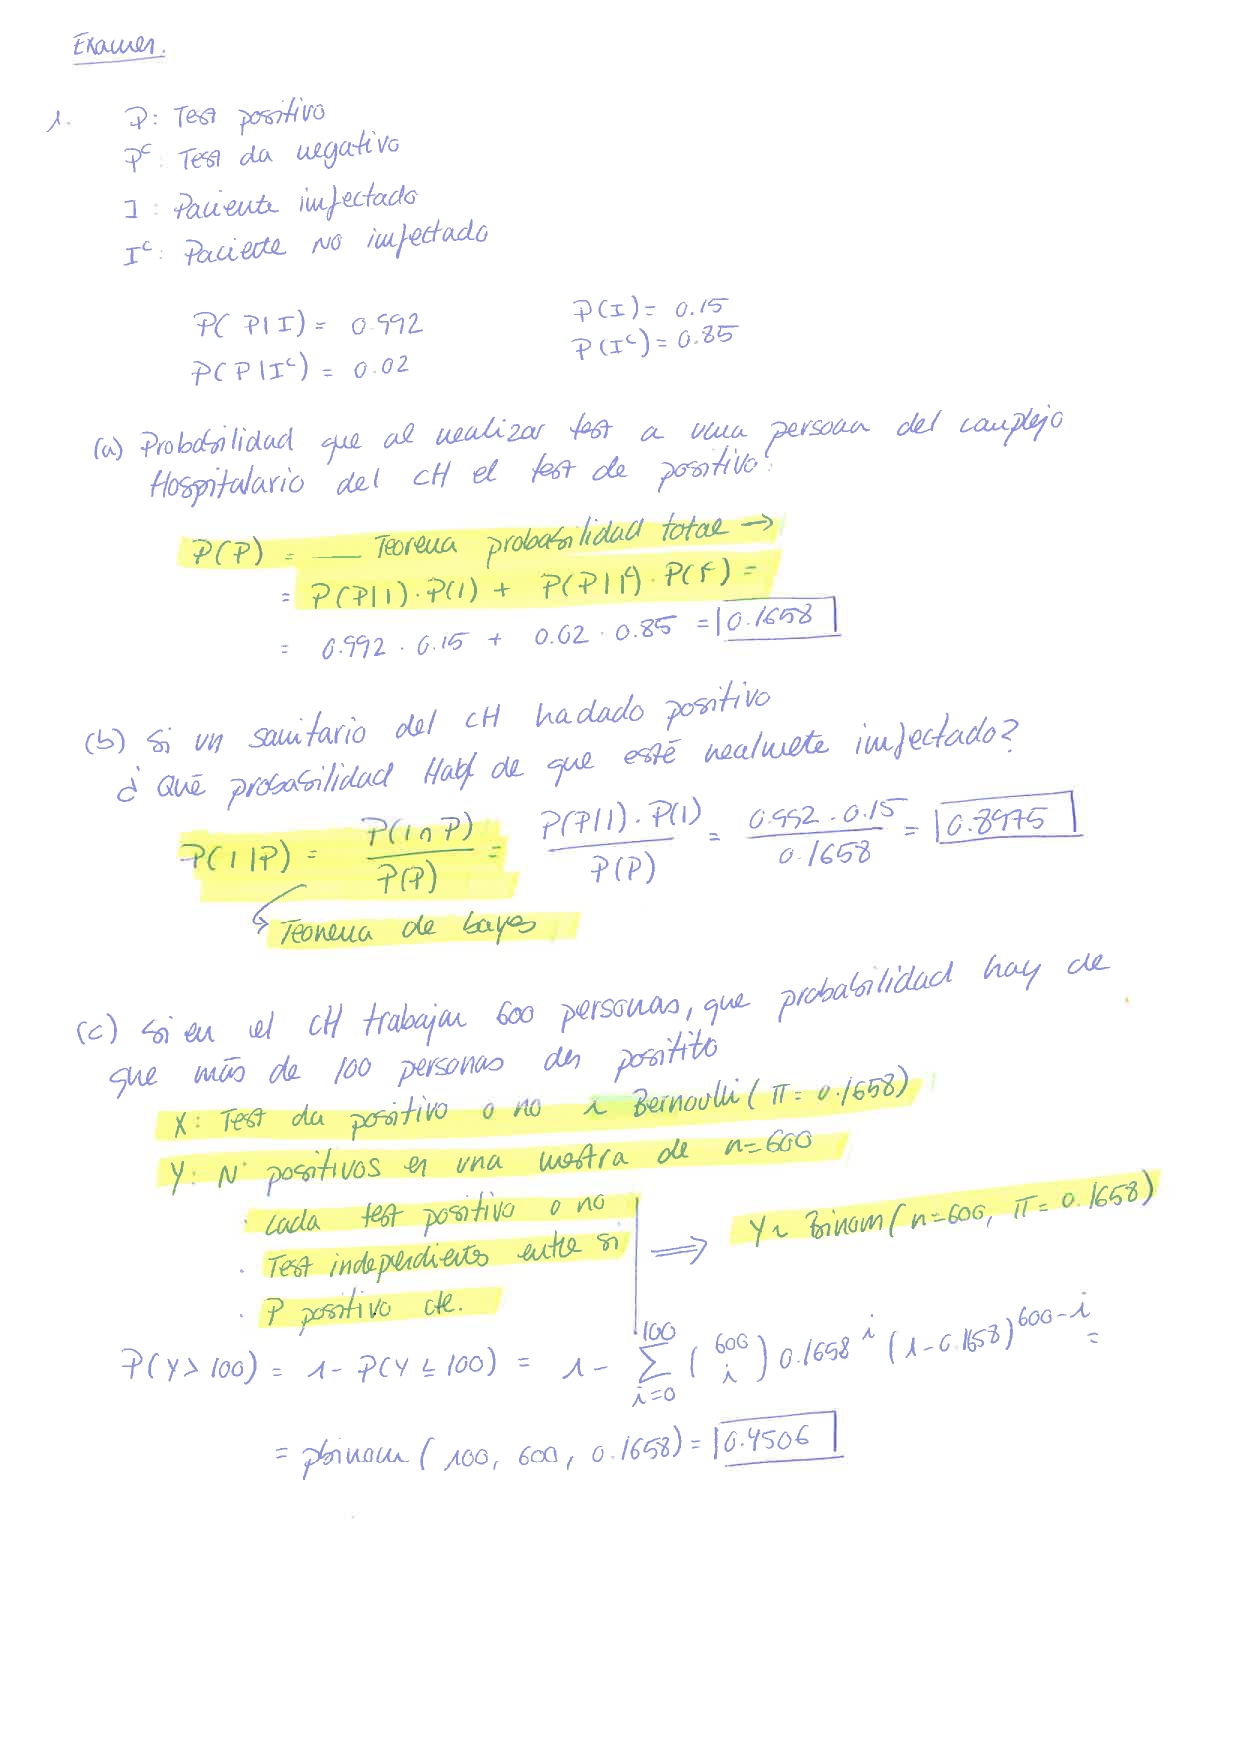 Examen.
1. P: Test positivo
Pᶜ: Test da negativo
I: Paciente infectado
Iᶜ: Paciente NO infectado
P(P|I) = 0.992 P(I) = 0.15
P(P|Iᶜ) = 0.02 P(Iᶜ) = 0.85
(a) Probabilidad que al realizar test a una persona del complejo
Hospitalario del CH el test de positivo?
P(P) = — Teorema probabilidad total →
= P(P|I) · P(I) + P(P|Iᶜ) · P(Iᶜ) =
= 0.992 · 0.15 + 0.02 · 0.85 = 0.1658
(b) Si un sanitario del CH ha dado positivo
¿Qué probabilidad Hay de que esté realmente infectado?
P(I|P) = P(I∩P) / P(P) = P(P|I) · P(I) / P(P) = 0.992 · 0.15 / 0.1658 = 0.8975
↳ Teorema de bayes
(c) Si en el CH trabajan 600 personas, que probabilidad hay de
que más de 100 personas den positito
X: Test da positivo o no ~ Bernoulli (π = 0.1658)
Y: Nº positivos en una mostra de n=600
· Cada test positivo o no
· Test independientes entre si ⟹ Y ~ Binom(n=600, π = 0.1658)
· P positivo cte.
P(Y > 100) = 1 - P(Y ≤ 100) = 1 - ∑_{i=0}^{100} (600 i) 0.1658^i (1-0.1658)^{600-i} =
= pbinom (100, 600, 0.1658) = 0.4506